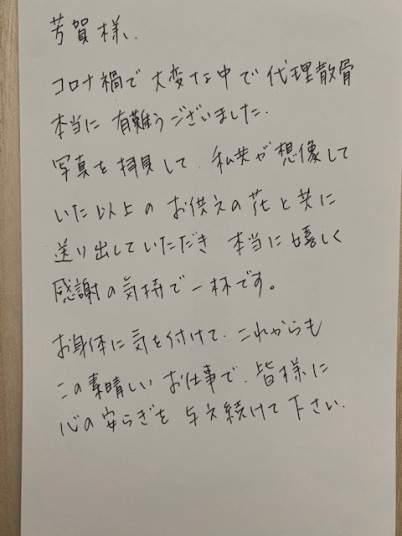 芳賀様、
コロナ禍で 大変な中で 代理散骨
本当に 有難うございました。
写真を拝見して、私共が想像して
いた以上の お供えの花と共に
送り出していただき 本当に嬉しく
感謝の気持で一杯です。
お身体に気を付けて、これからも
この素晴しい お仕事で、皆様に
心の安らぎを 与え続けて下さい。